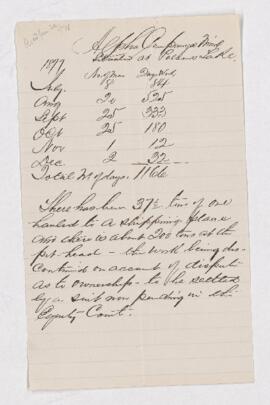 Alpha Company's Mine
Situated at Lake.
1899 No of Men Days Work
July 8 84
Aug 20 525
Sept 25 333
Oct 25 180
Nov 1 12
Dec 2 32
Total No of days. 1166
There has been 37½ tons of ore
hauled to a shipping place
and there is about 200 tons at the
pit-head - the work being dis-
continued on account of disput-
as to ownership - to be settled
by a suit now pending in the
Equity Court.